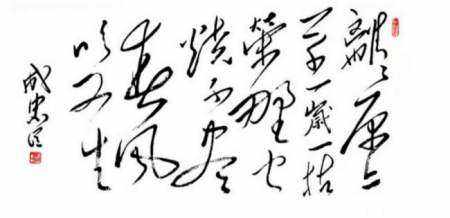 離離原上
草一歲一枯
榮野火
燒不尽
春風
吹又生